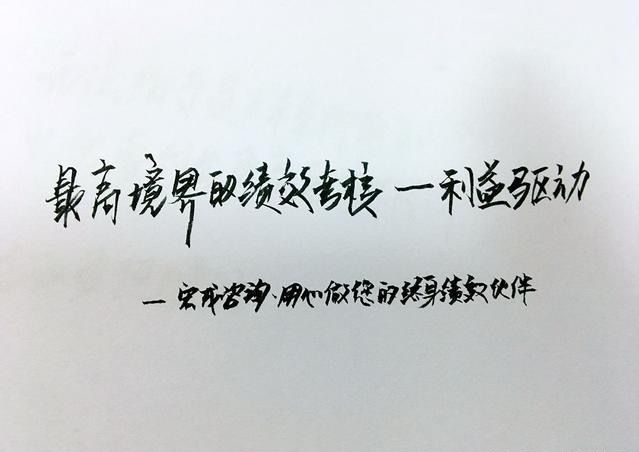 最高境界的绩效考核一利益驱动
一宏成咨询·用心做您的终身绩效伙伴